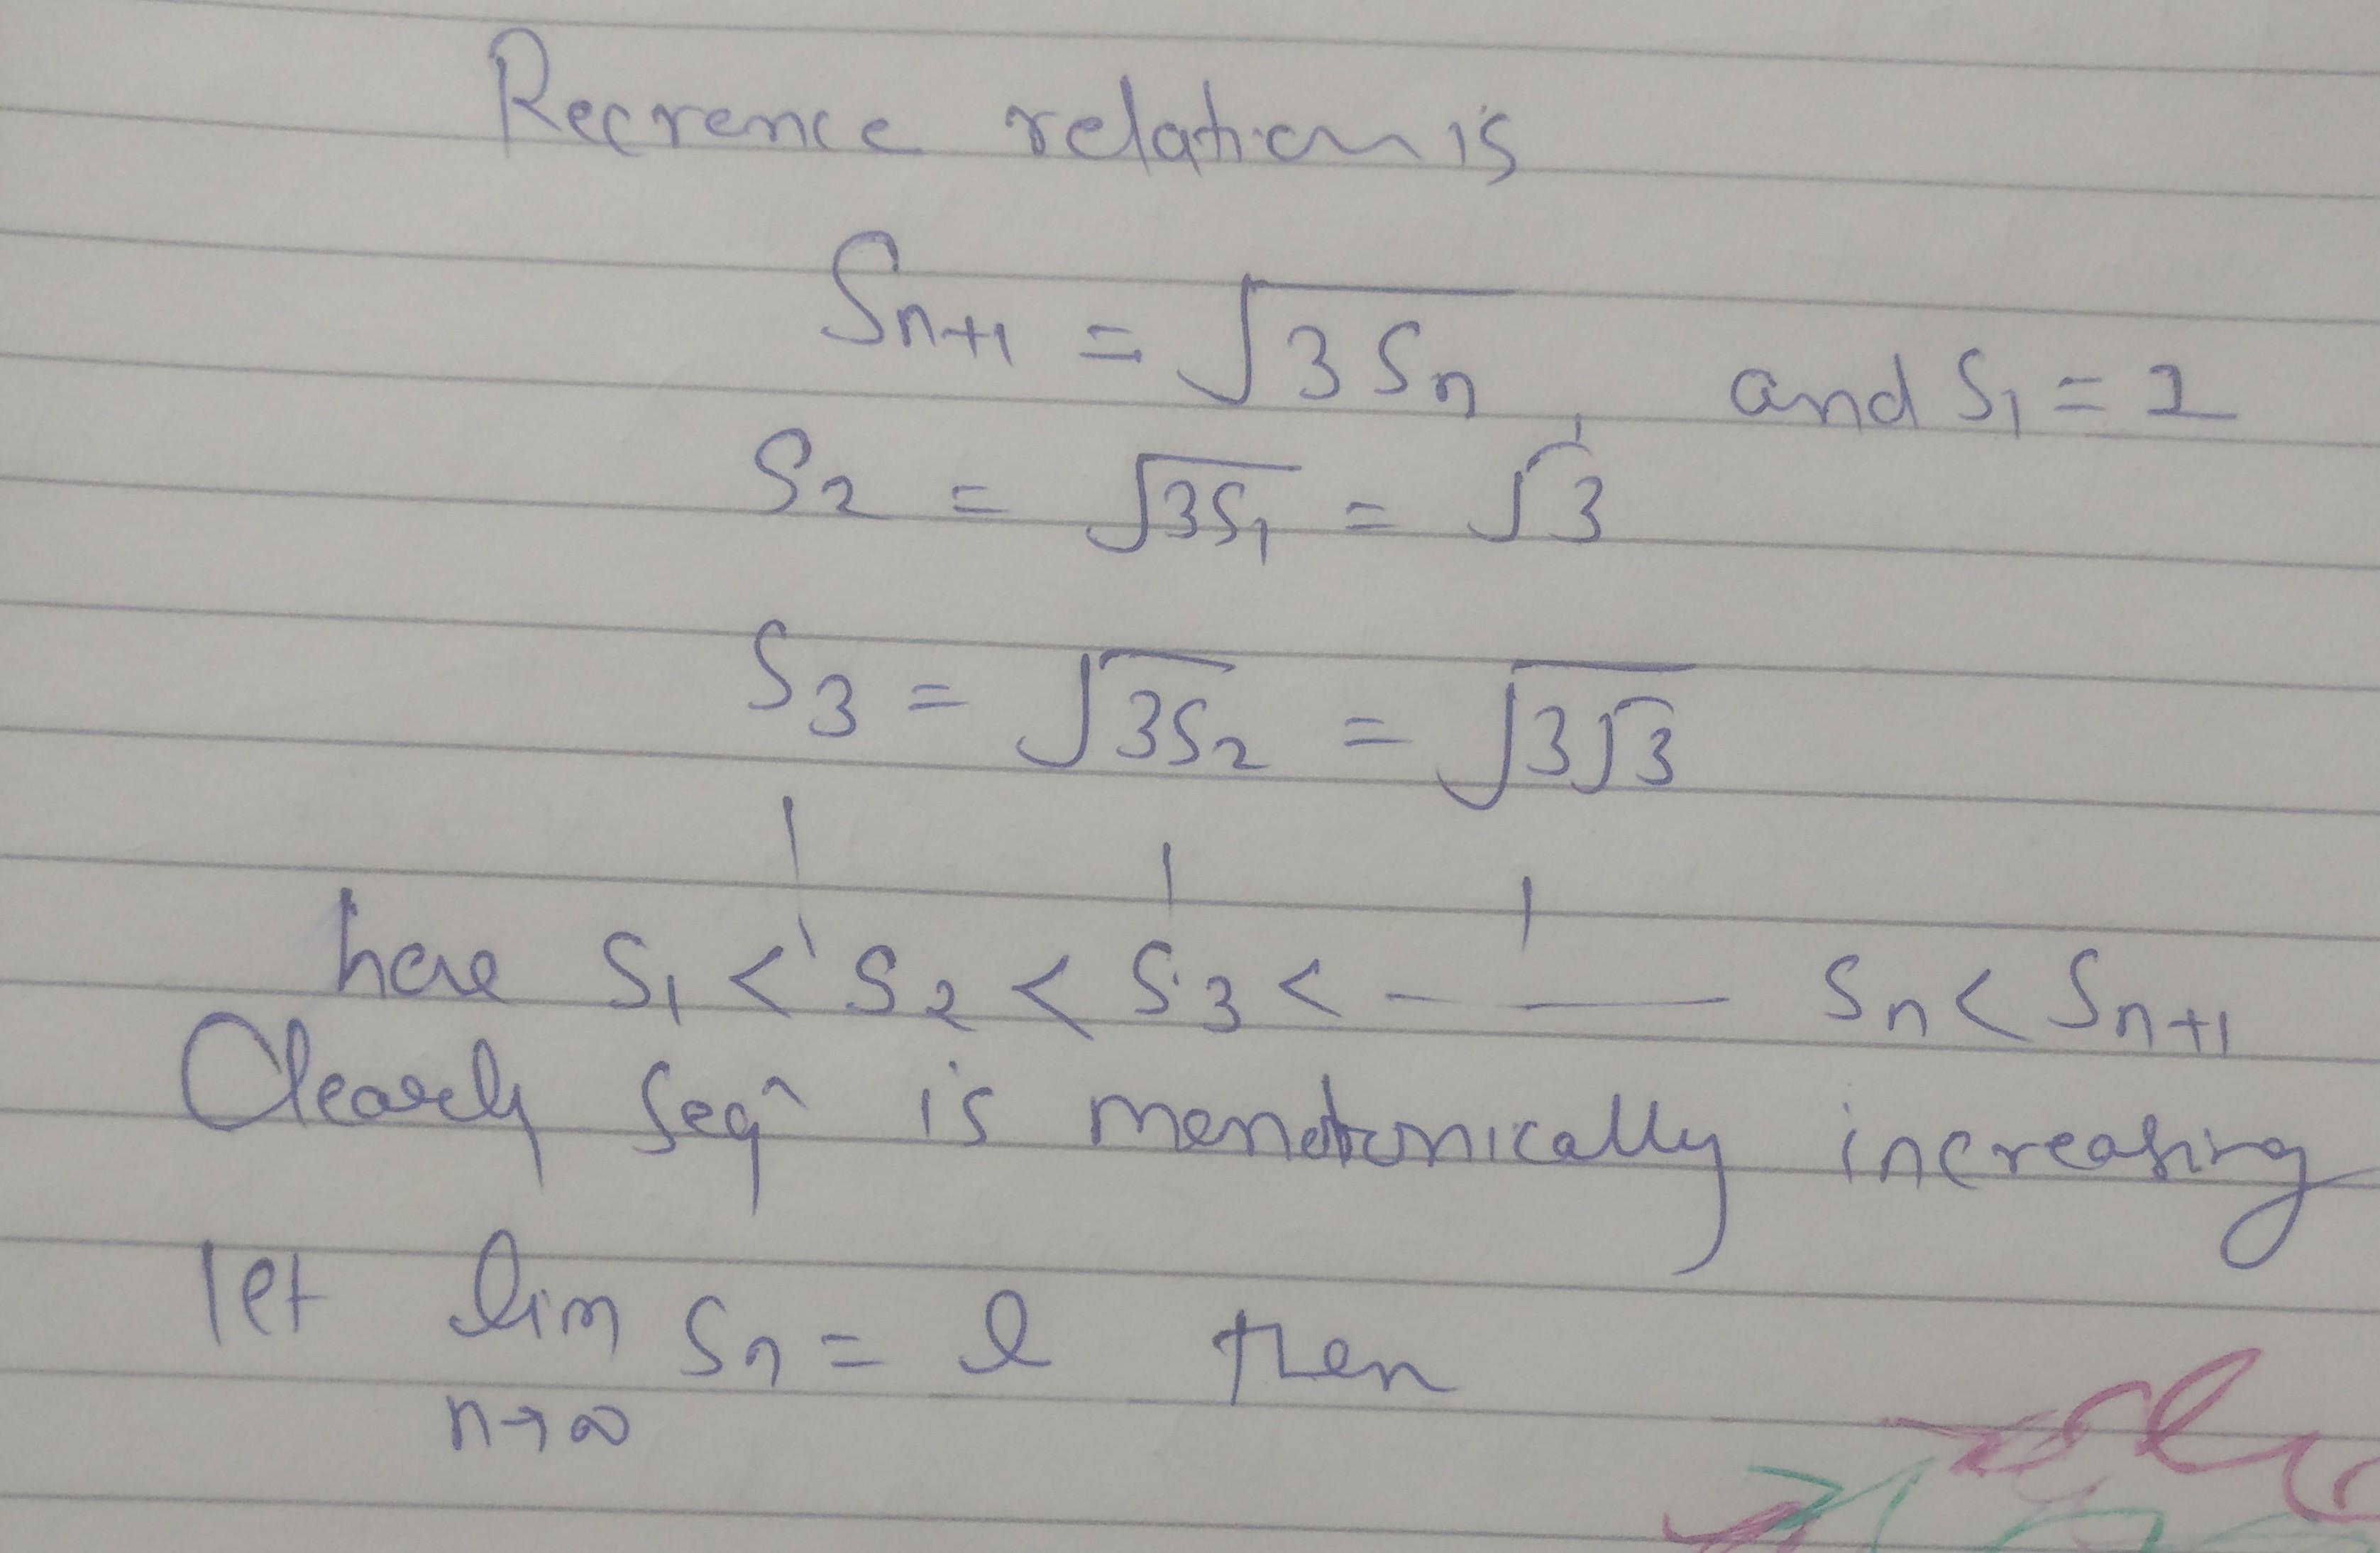 Recrence relation is
Sn+1 = √3Sn, and S1 = 1
S2 = √3S1 = √3
S3 = √3S2 = √3√3
here S1 < S2 < S3 < - — Sn < Sn+1
Clearly Seqn is monotonically increasing
let lim Sn = l then
n→∞